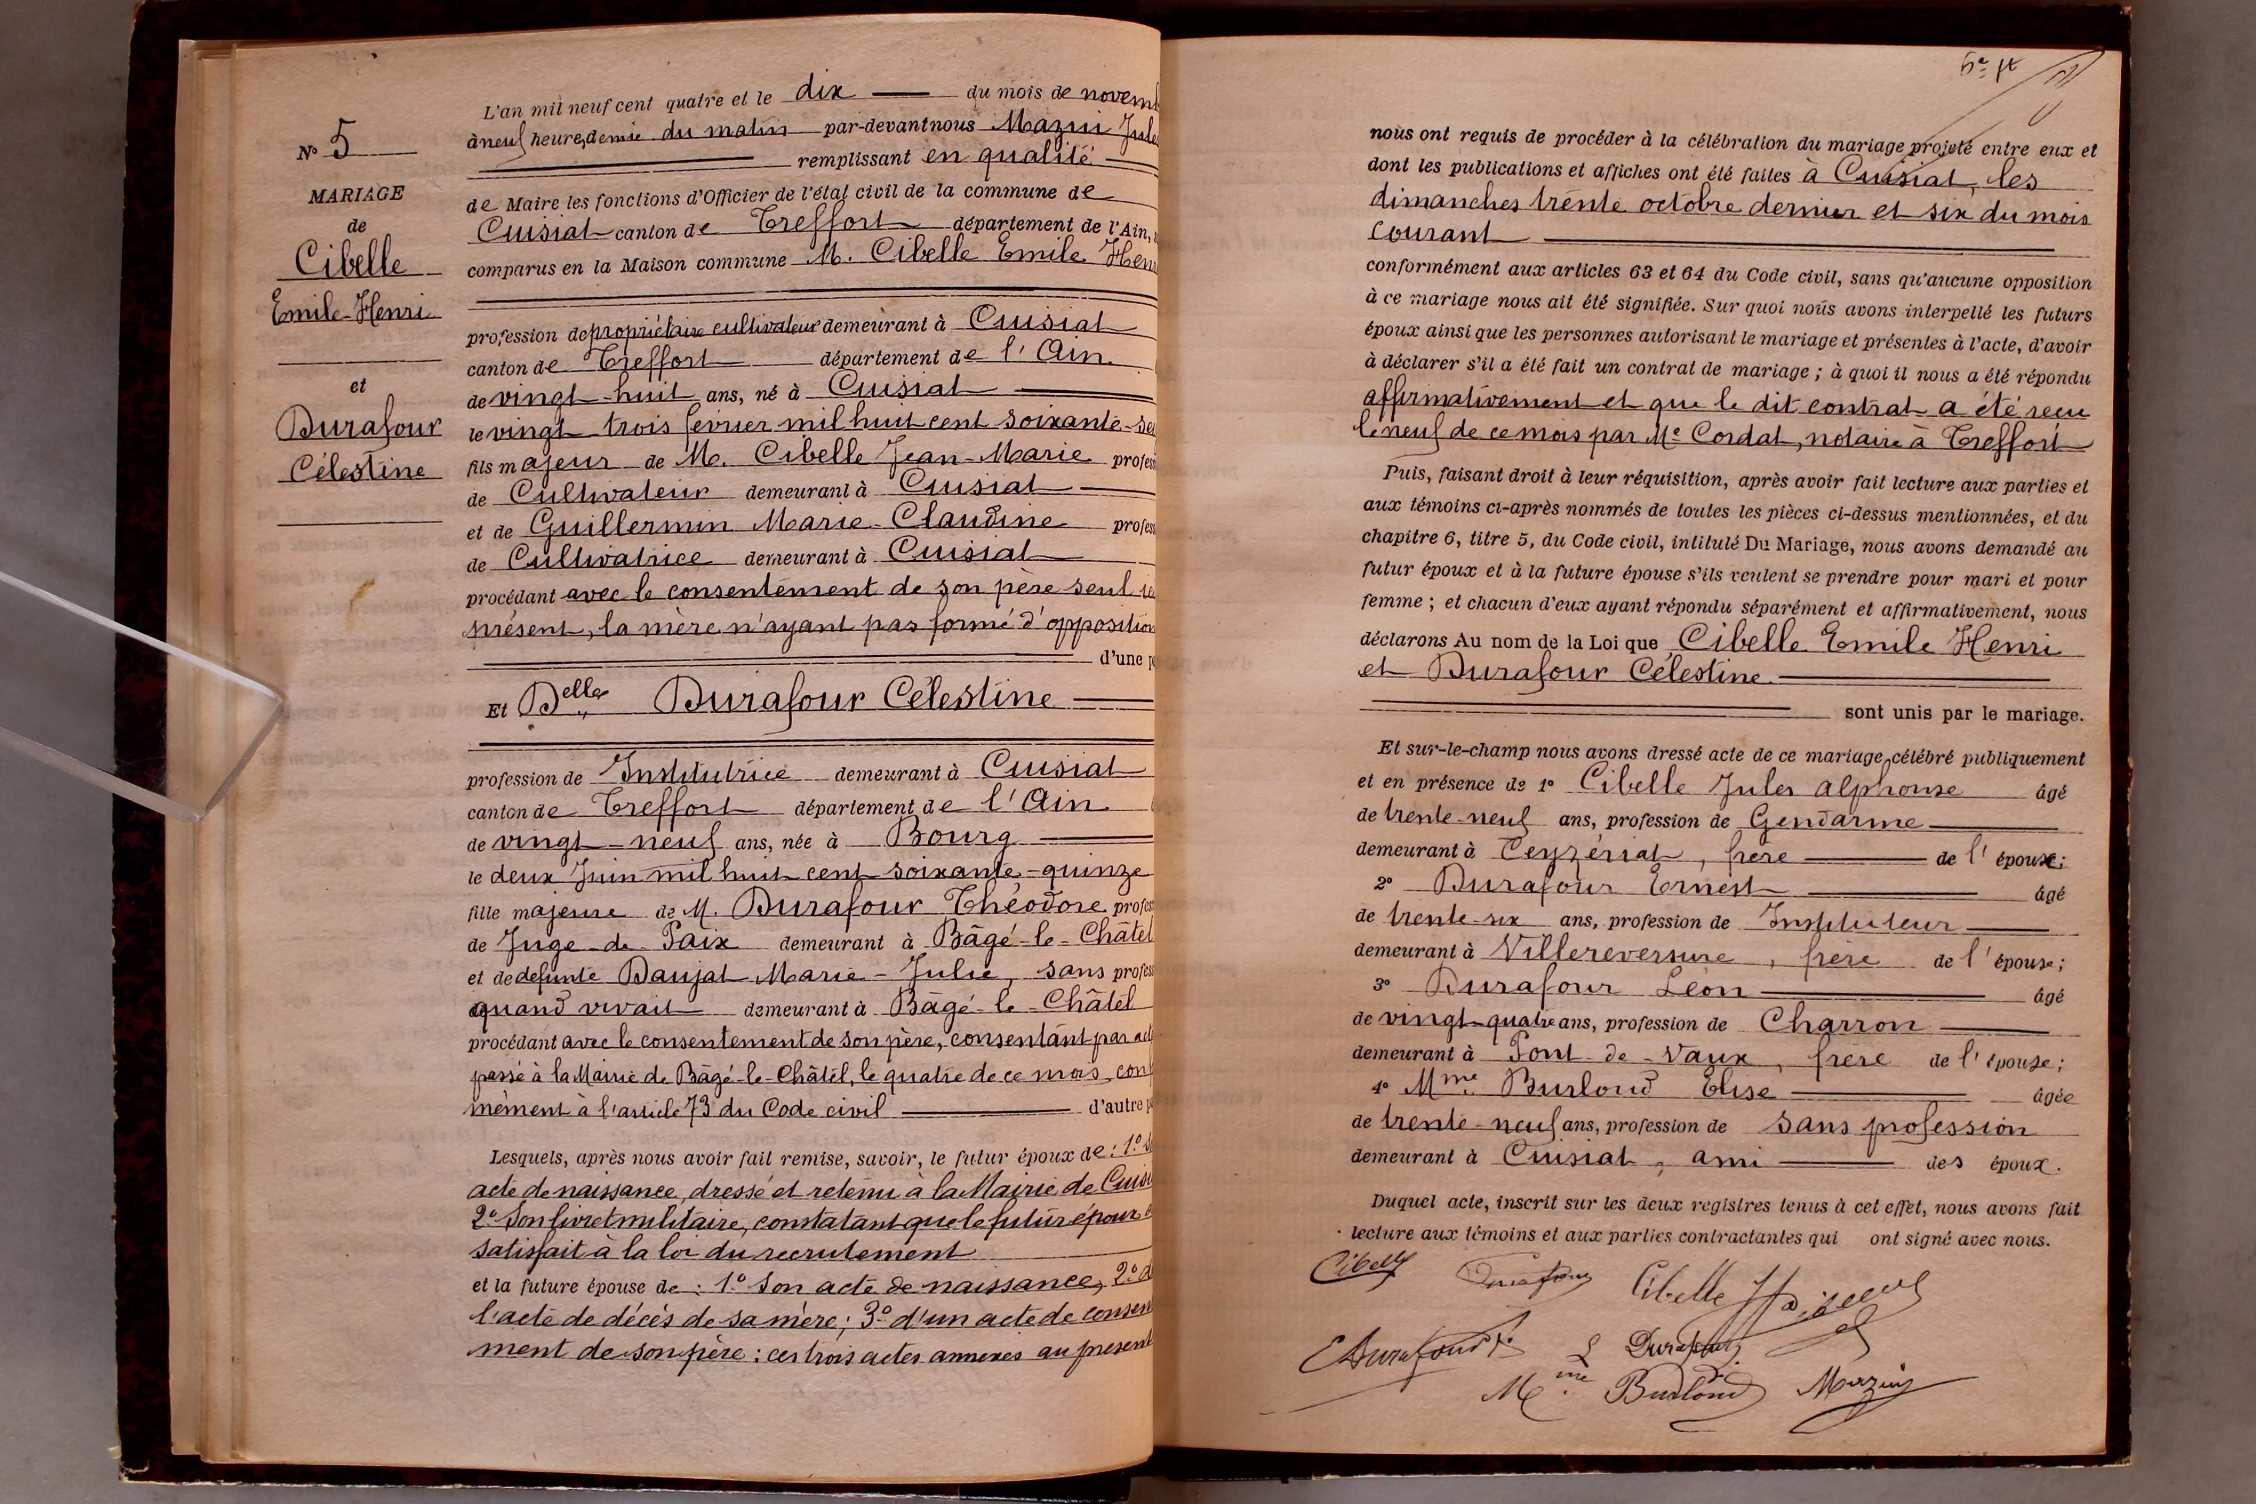 N° 5
MARIAGE
de
Cibelle
Emile-Henri
et
Durafour
Célestine
L'an mil neuf cent quatre et le dix du mois de novemb
à neuf heures, demie du matin par-devant nous Mazui Jules
remplissant en qualité
de Maire les fonctions d'Officier de l'état civil de la commune de
Cuisiat canton de Treffort département de l'Ain,
comparus en la Maison commune M. Cibelle Emile Hen
profession de propriétaire cultivateur demeurant à Cuisiat
canton de Treffort département de l'Ain
de vingt-huit ans, né à Cuisiat
le vingt-trois février mil huit cent soixante-sei
fils majeur de M. Cibelle Jean-Marie profess
de Cultivateur demeurant à Cuisiat
et de Guillermin Marie-Claudine profess
de Cultivatrice demeurant à Cuisiat
procédant avec le consentement de son père seul
présent, la mère n'ayant pas formé d'opposition
d'une p
Et Delle Durafour Célestine
profession de Institutrice demeurant à Cuisiat
canton de Treffort département de l'Ain
de vingt-neuf ans, née à Bourg
le deux Juin mil huit cent soixante-quinze
fille majeure de M. Durafour Théodore profes
de Juge de Paix demeurant à Bâgé-le-Châtel
et de défunte Daujat Marie-Julie, sans profess
quand vivait demeurant à Bâgé-le-Châtel
procédant avec le consentement de son père, consentant par act
passé à la Mairie de Bâgé-le-Châtel, le quatre de ce mois, conf
mément à l'article 73 du Code civil d'autre p
Lesquels, après nous avoir fait remise, savoir, le futur époux de : 1° s
acte de naissance, dressé et retenu à la Mairie de Cuisi
2° Son livret militaire, constatant que le futur époux a
satisfait à la loi du recrutement
et la future épouse de : 1° Son acte de naissance, 2° d
l'acte de décès de sa mère ; 3° d'un acte de consen
ment de son père : ces trois actes annexés au présent
nous ont requis de procéder à la célébration du mariage projeté entre eux et
dont les publications et affiches ont été faites à Cuisiat, les
dimanches trente octobre dernier et six du mois
courant
conformément aux articles 63 et 64 du Code civil, sans qu'aucune opposition
à ce mariage nous ait été signifiée. Sur quoi nous avons interpellé les futurs
époux ainsi que les personnes autorisant le mariage et présentes à l'acte, d'avoir
à déclarer s'il a été fait un contrat de mariage ; à quoi il nous a été répondu
affirmativement et que le dit contrat a été reçu
le neuf de ce mois par Me Cordat, notaire à Treffort
Puis, faisant droit à leur réquisition, après avoir fait lecture aux parties et
aux témoins ci-après nommés de toutes les pièces ci-dessus mentionnées, et du
chapitre 6, titre 5, du Code civil, intitulé Du Mariage, nous avons demandé au
futur époux et à la future épouse s'ils veulent se prendre pour mari et pour
femme ; et chacun d'eux ayant répondu séparément et affirmativement, nous
déclarons Au nom de la Loi que Cibelle Emile Henri
et Durafour Célestine
sont unis par le mariage.
Et sur-le-champ nous avons dressé acte de ce mariage, célébré publiquement
et en présence de 1° Cibelle Jules Alphonse âgé
de trente-neuf ans, profession de Gendarme
demeurant à Ceyzériat, frère de l'époux ;
2° Durafour Ernest âgé
de trente-six ans, profession de Instituteur
demeurant à Villereversure, frère de l'épouse ;
3° Durafour Léon âgé
de vingt-quatre ans, profession de Charron
demeurant à Pont-de-Vaux, frère de l'épouse ;
4° Mme Burloud Elise âgée
de trente-neuf ans, profession de sans profession
demeurant à Cuisiat, ami des époux.
Duquel acte, inscrit sur les deux registres tenus à cet effet, nous avons fait
lecture aux témoins et aux parties contractantes qui ont signé avec nous.
Cibelle Durafour Cibelle
E Durafour L Durafour
Mme Burloud Mazui